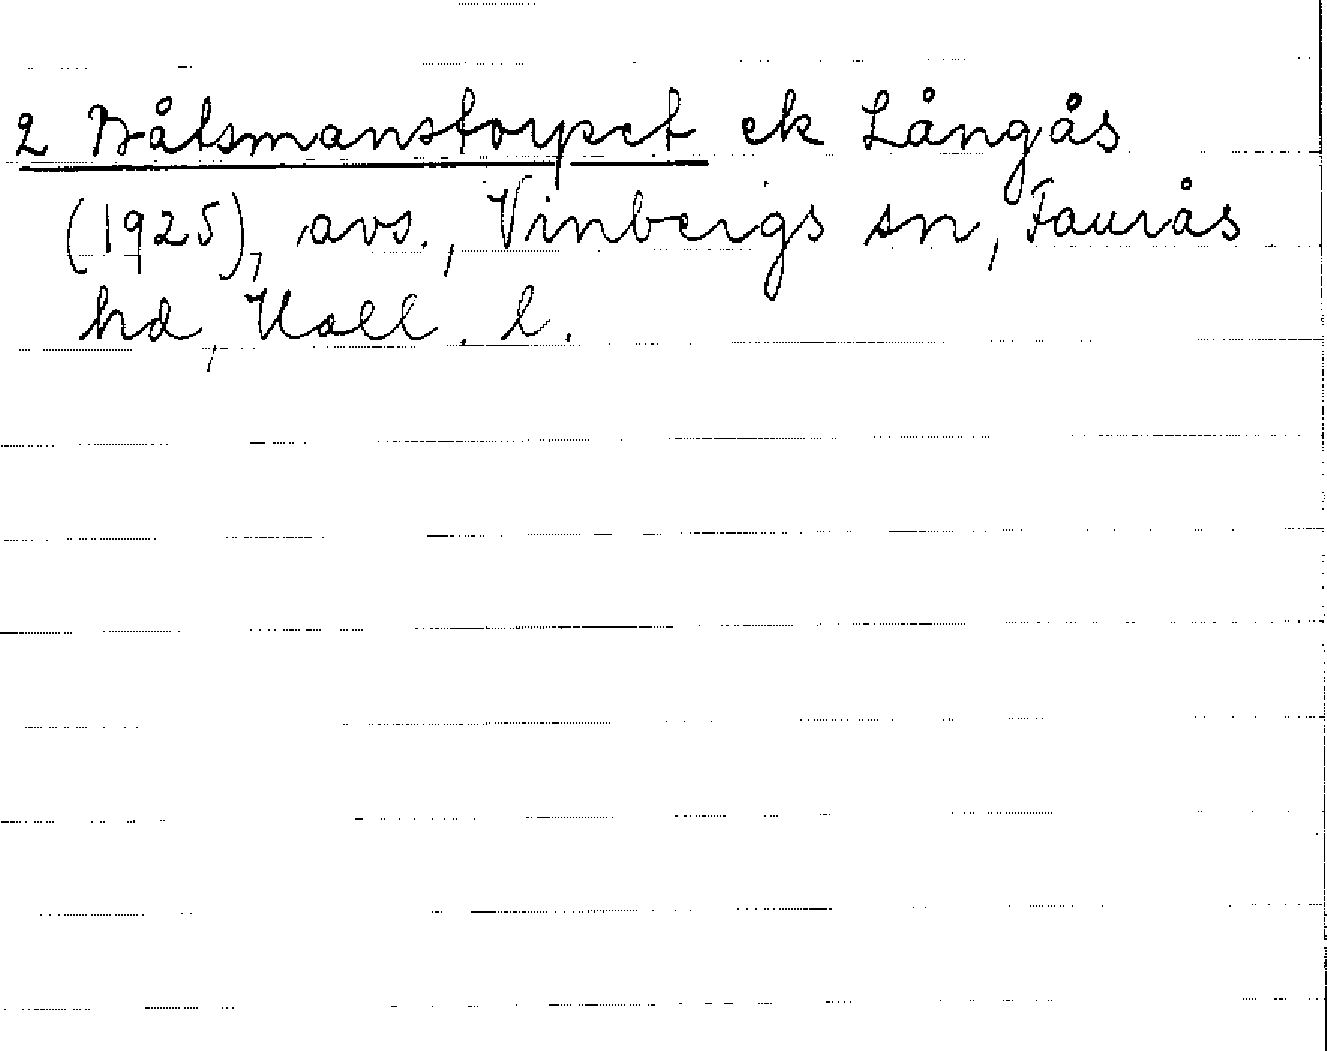 2 Båtsmanstorpet ek Långås
(1925), avs., Vinbergs sn, Faurås
hd, Hall. l.